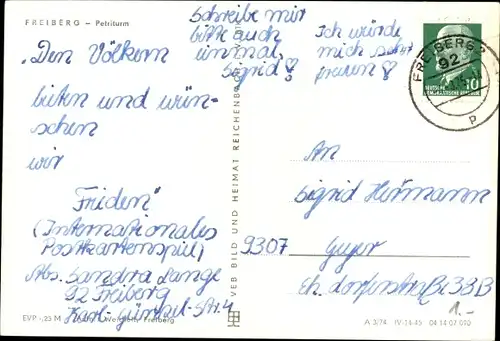 FREIBERG – Petriturm
Schreibe mir
bitte auch
einmal,
Sigrid!
Ich würde
mich sehr
freuen!
FREIBERG 2
92
P
DEUTSCHE
DEMOKRATISCHE REPUBLIK
10
"Den Völkern
bieten und wün-
schen
wir
Frieden"
(Internationales
Postkartenspiel)
Abs. Sandra Lange
92 Freiberg
Karl-Günzel-Str. 4
VEB BILD UND HEIMAT REICHENBACH
An
Sigrid Hofmann
9307 Geyer
Eh.
38B
1.-
EVP -,25 M
Freiberg
A 3/74 IV-14-45 04 14 07 010